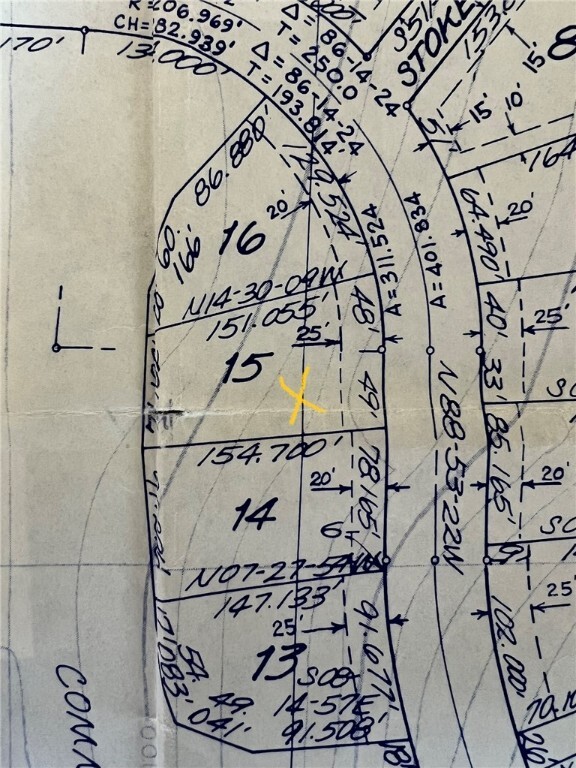 R=206.969'
CH=132.939'
170'
134.000'
Δ=86-14-24
T=250.0
Δ=86-14-24
T=193.814'
STOKE
153.0
8
15'
15'
10'
51'
164
86.880'
20'
129.524'
60.
166'
16
N14-30-09W
151.055'
A=311.524
A=401.834
64.490'
20'
48'
40'
25'
25'
15
49'
33'
N88-53-22W
85.165'
154.700'
20'
14
78.165'
20'
6
147.133'
25'
13
91.677'
102.00'
25'
54.
083'
S08-
14-57E
49.
041'
91.508'
COMM
70.10